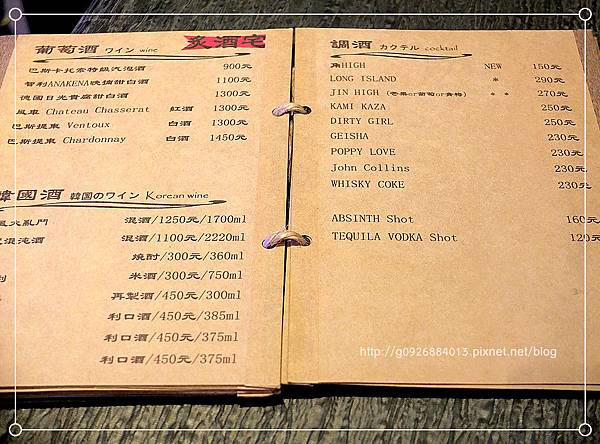 葡萄酒 ワイン wine 炙酒宅
巴斯卡托奈特級汽泡酒 900元
智利ANAKENA晚摘甜白酒 1100元
德國日光貴腐甜白酒 1300元
風車 Chateau Chasserat 紅酒 1300元
巴斯提東 Ventoux 白酒 1300元
巴斯提東 Chardonnay 白酒 1450元
韓國酒 韓国のワイン Korean wine
混酒/1250元/1700ml
混酒/1100元/2220ml
燒酎/300元/360ml
米酒/300元/750ml
再製酒/450元/300ml
利口酒/450元/385ml
利口酒/450元/375ml
利口酒/450元/375ml
調酒 カクテル cocktail
角HIGH NEW 150元
LONG ISLAND * 290元
JIN HIGH (芒果or葡萄or青梅) * * 270元
KAMI KAZA 250元
DIRTY GIRL 250元
GEISHA 230元
POPPY LOVE 230元
John Collins 230元
WHISKY COKE 230元
ABSINTH Shot 160元
TEQUILA VODKA Shot 120元
http://g0926884013.pixnet.net/blog